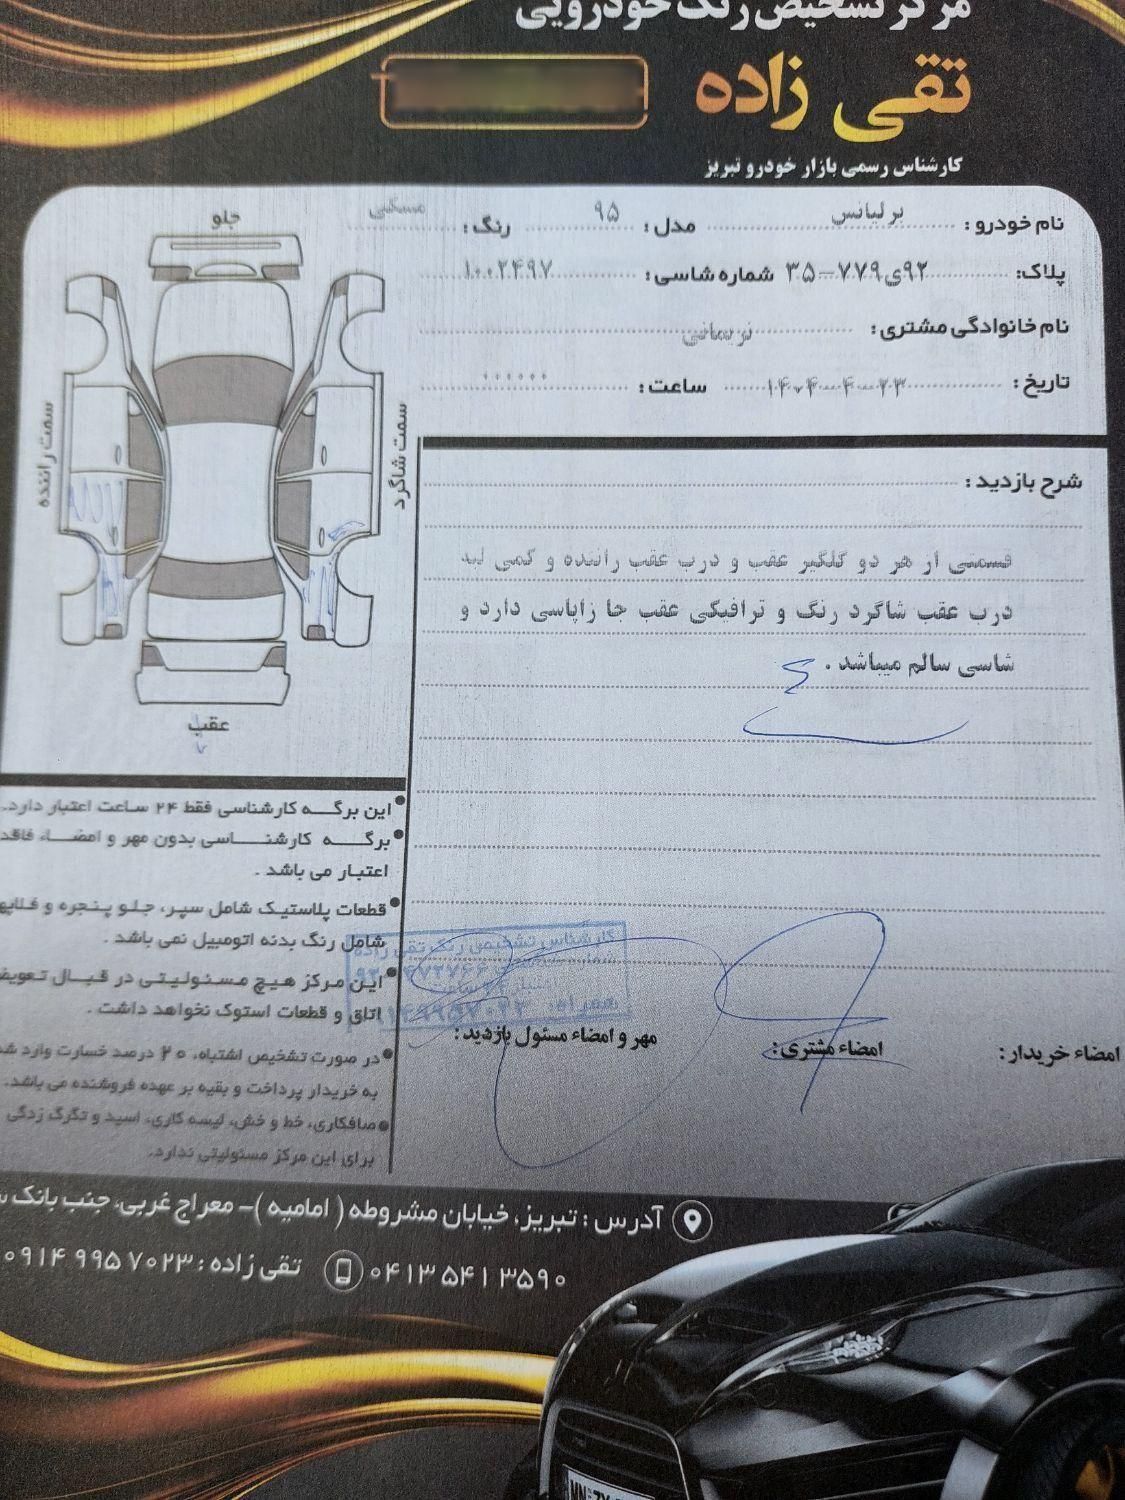 مرکز تشخیص رنگ خودرویی
تقی زاده
کارشناس رسمی بازار خودرو تبریز
نام خودرو : برلیانس مدل : ۹۵ رنگ :
پلاک: ۹۲ی۷۷۹-۳۵ شماره شاسی : ۱۰۰۲۴۹۷
نام خانوادگی مشتری : نریمانی
تاریخ : ۱۴۰۴-۴-۲۳ ساعت : ۰۰۰۰۰۰
جلو
سمت راننده
سمت شاگرد
عقب
شرح بازدید :
قسمتی از هر دو گلگیر عقب و درب عقب راننده و کمی لبه
درب عقب شاگرد رنگ و ترافیکی عقب جا زاپاسی دارد و
شاسی سالم میباشد .
این برگه کارشناسی فقط ۲۴ ساعت اعتبار دارد.
برگه کارشناسی بدون مهر و امضاء فاقد
اعتبار می باشد .
قطعات پلاستیک شامل سپر، جلو پنجره و
شامل رنگ بدنه اتومبیل نمی باشد .
این مرکز هیچ مسئولیتی در قبال تعویض
اتاق و قطعات استوک نخواهد داشت .
در صورت تشخیص اشتباه، ۲۰ درصد خسارت وارد
به خریدار پرداخت و بقیه بر عهده فروشنده می باشد.
صافکاری، خط و خش، لیسه گاری، اسید و تگرگ زدگی
برای این مرکز مسئولیتی ندارد.
کارشناس تشخیص رنگ تقی زاده
۲۴ ساعت
همراه:
مهر و امضاء مسئول بازدید :
امضاء مشتری :
امضاء خریدار :
آدرس : تبریز، خیابان مشروطه ( امامیه )- معراج غربی، جنب بانک
۰۴۱۳۵۴۱۳۵۹۰ تقی زاده : ۰۹۱۴۹۹۵۷۰۲۳